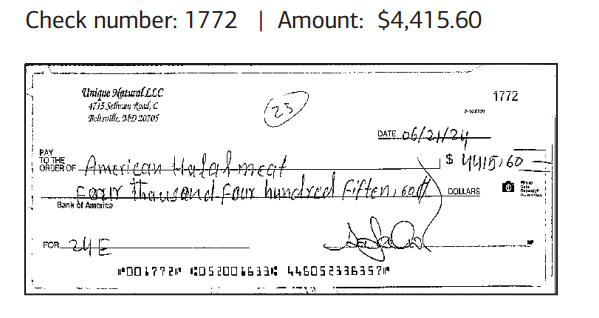 Check number: 1772 | Amount: $4,415.60
Unique Natural LLC
4715 Sellman Road, C
Beltsville, MD 20705
23
1772
DATE 06/21/24
PAY
TO THE
ORDER OF American Halal meat
$ 4415,60
Four thousand four hundred Fiften, 60//
DOLLARS
Bank of America
FOR 24E
⑈001772⑈ ⑆052001633⑆ 446052336357⑈